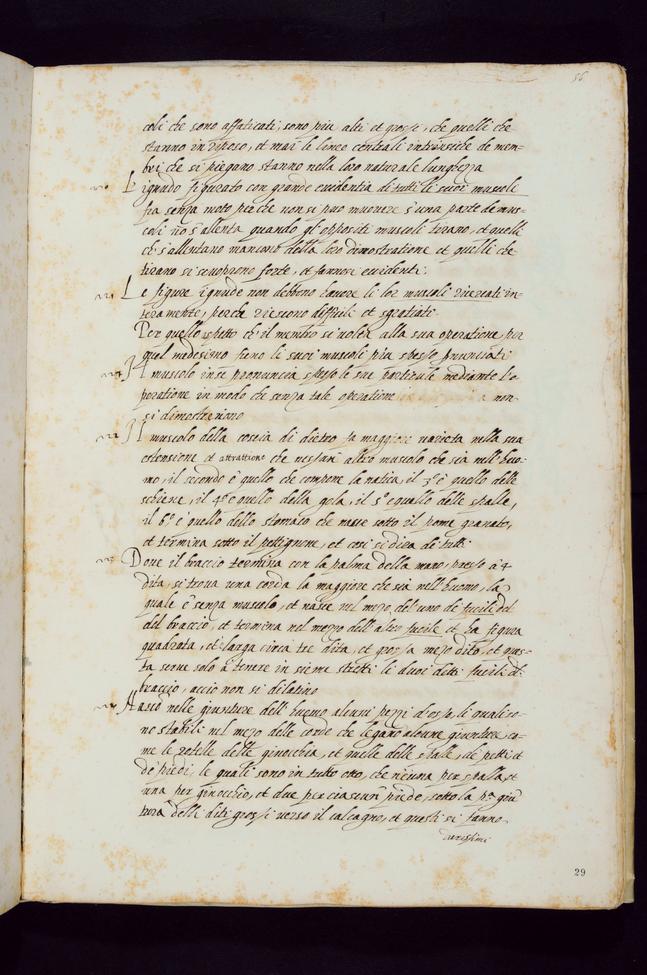 56
coli che sono affaticati, sono piu alti et grossi, che quelli che
stanno in riposo, et mai le linee centrali intrinsiche de mem=
bri che si piegano stanno nella loro naturale lunghezza
L ignudo figurato con grande euidentia di tutti li suoi muscoli
fia senza moto perche non si puo muouere s'una parte de mus=
coli nō s'allenta quando gl'oppositi muscoli tirano, et quelli
ch' s'allentano mancano della loro dimostratione et quelli che
tirano si scuoprono forte, et fannosi euidenti.
Le figure ignude non debbono hauere li lor muscoli ricercati in=
teramente, perche riescono difficili et sgratiati
Per quello aspetto ch' il membro si uolta alla sua operatione per
quel medesimo fieno li suoi muscoli piu spesso pnunciati
Il muscolo in se pronuncia spesso le sue particule mediante l'o
peratione in modo che senza tale operatione non
si dimostrauano
Il muscolo della coscia di dietro fa maggiore uarieta nella sua
estensione et attrattione che nessun altro muscolo che sia nell'huo=
mo, il secondo è quello che compone la natica, il 3º è quello delle
schiene, il 4º è quello della gola, il 5º è quello delle spalle,
il 6º è quello dello stomaco che nasce sotto il pome granato,
et termina sotto il pettignone, et cosi si dira de tutti
Doue il braccio termina con la palma della mano, presso à 4
dita, si troua una corda la maggiore che sia nell'huomo, la
quale è senza muscolo, et nasce nel mezo del'uno de fucile del
del braccio, et termina nel mezzo dell'altro fucile et ha figura
quadrata, et larga circa tre dita, et grossa mezo dito, et ques=
ta serue solo à tenere in sieme stretti li duoi detti fucili d'l
braccio, accio non si dilatino
Nascō nelle giunture dell'huomo alcuni pezzi d'osso, li quali so=
no stabili nel mezo delle corde che legano alcune giunture, co=
me le rotelle delle ginocchia, et quelle delle spalle, de petti et
de piedi, le quali sono in tutto otto, che ne una per spalla, et
una per ginocchio, et due per ciascun piede, sotto la pª giū
tura delli diti grossi uerso il calcagno, et questi si fanno
durissimi
29